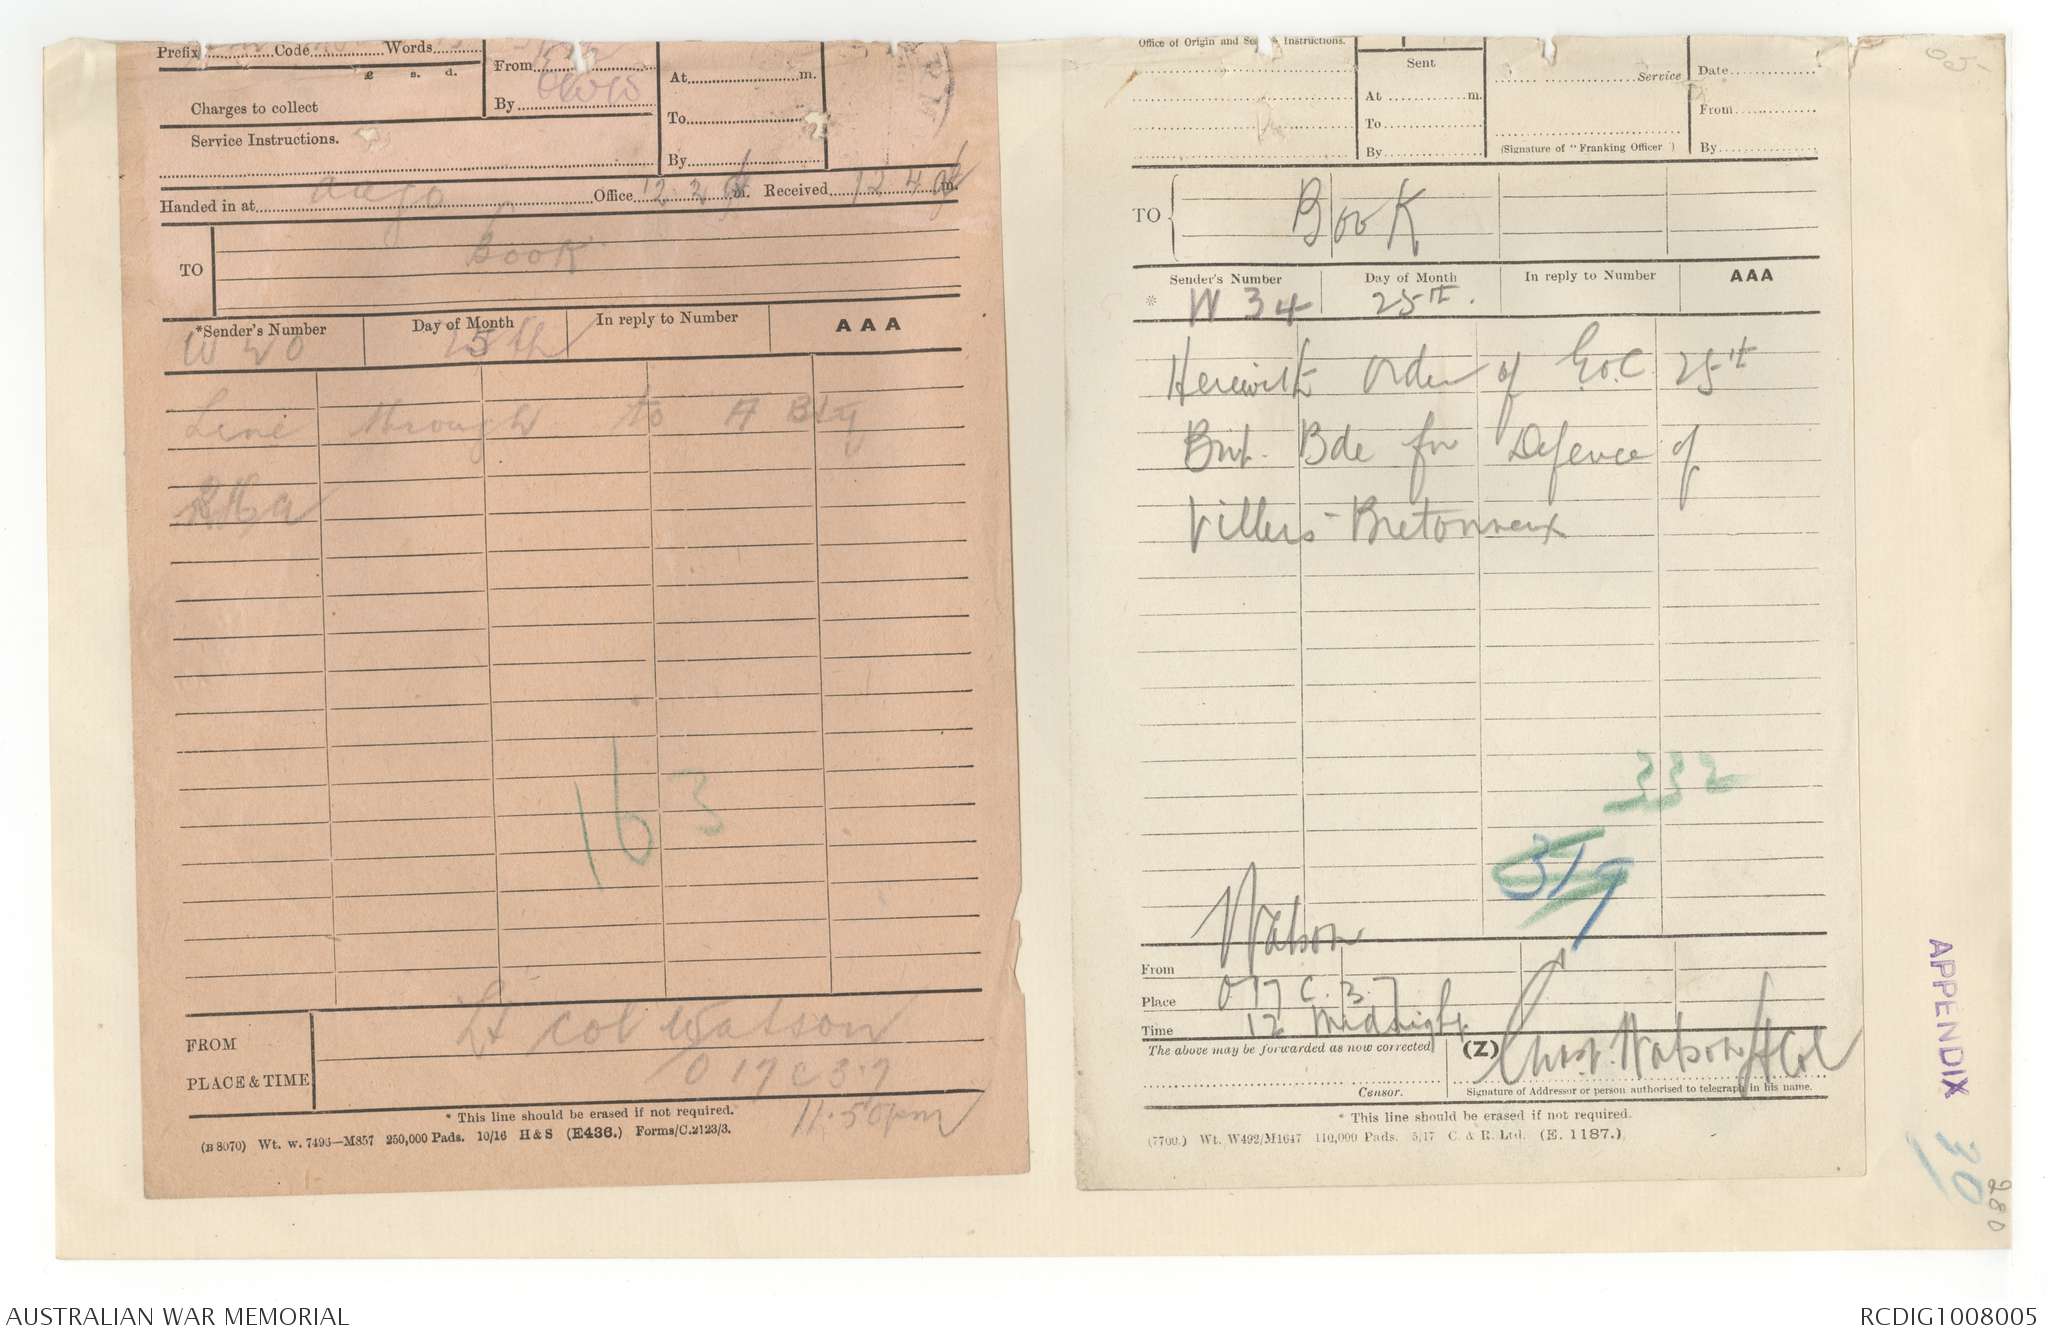 Prefix Code Words
£ s. d.
Charges to collect
From
By
At m.
To
By
Service Instructions.
Handed in at Office 12.2 m. Received 12 4 m.
TO Book
*Sender's Number Day of Month In reply to Number AAA
25th
Line through to A Bty
RHA
163
FROM Lt Col Watson
PLACE & TIME O 17 C 3.7
11.50pm
* This line should be erased if not required.
(B 8070) Wt. w. 7496—M857 250,000 Pads. 10/16 H & S (E436.) Forms/C.2123/3.
Office of Origin and Service Instructions.
Sent
At m.
To
By
Service
(Signature of "Franking Officer")
Date
From
By
TO Book
Sender's Number Day of Month In reply to Number AAA
* W 34 25th.
Herewith Order of G.O.C 25th
Brit. Bde for Defence of
Villers-Bretonneux
332
319
From Watson
Place O 17 C. 3.7
Time 12 Midnight
The above may be forwarded as now corrected. (Z)
Censor. Signature of Addressor or person authorised to telegraph in his name.
* This line should be erased if not required.
(7700.) Wt. W492/M1647 110,000 Pads. 5/17 C. & R. Ltd. (E. 1187.)
APPENDIX 30
280
AUSTRALIAN WAR MEMORIAL
RCDIG1008005